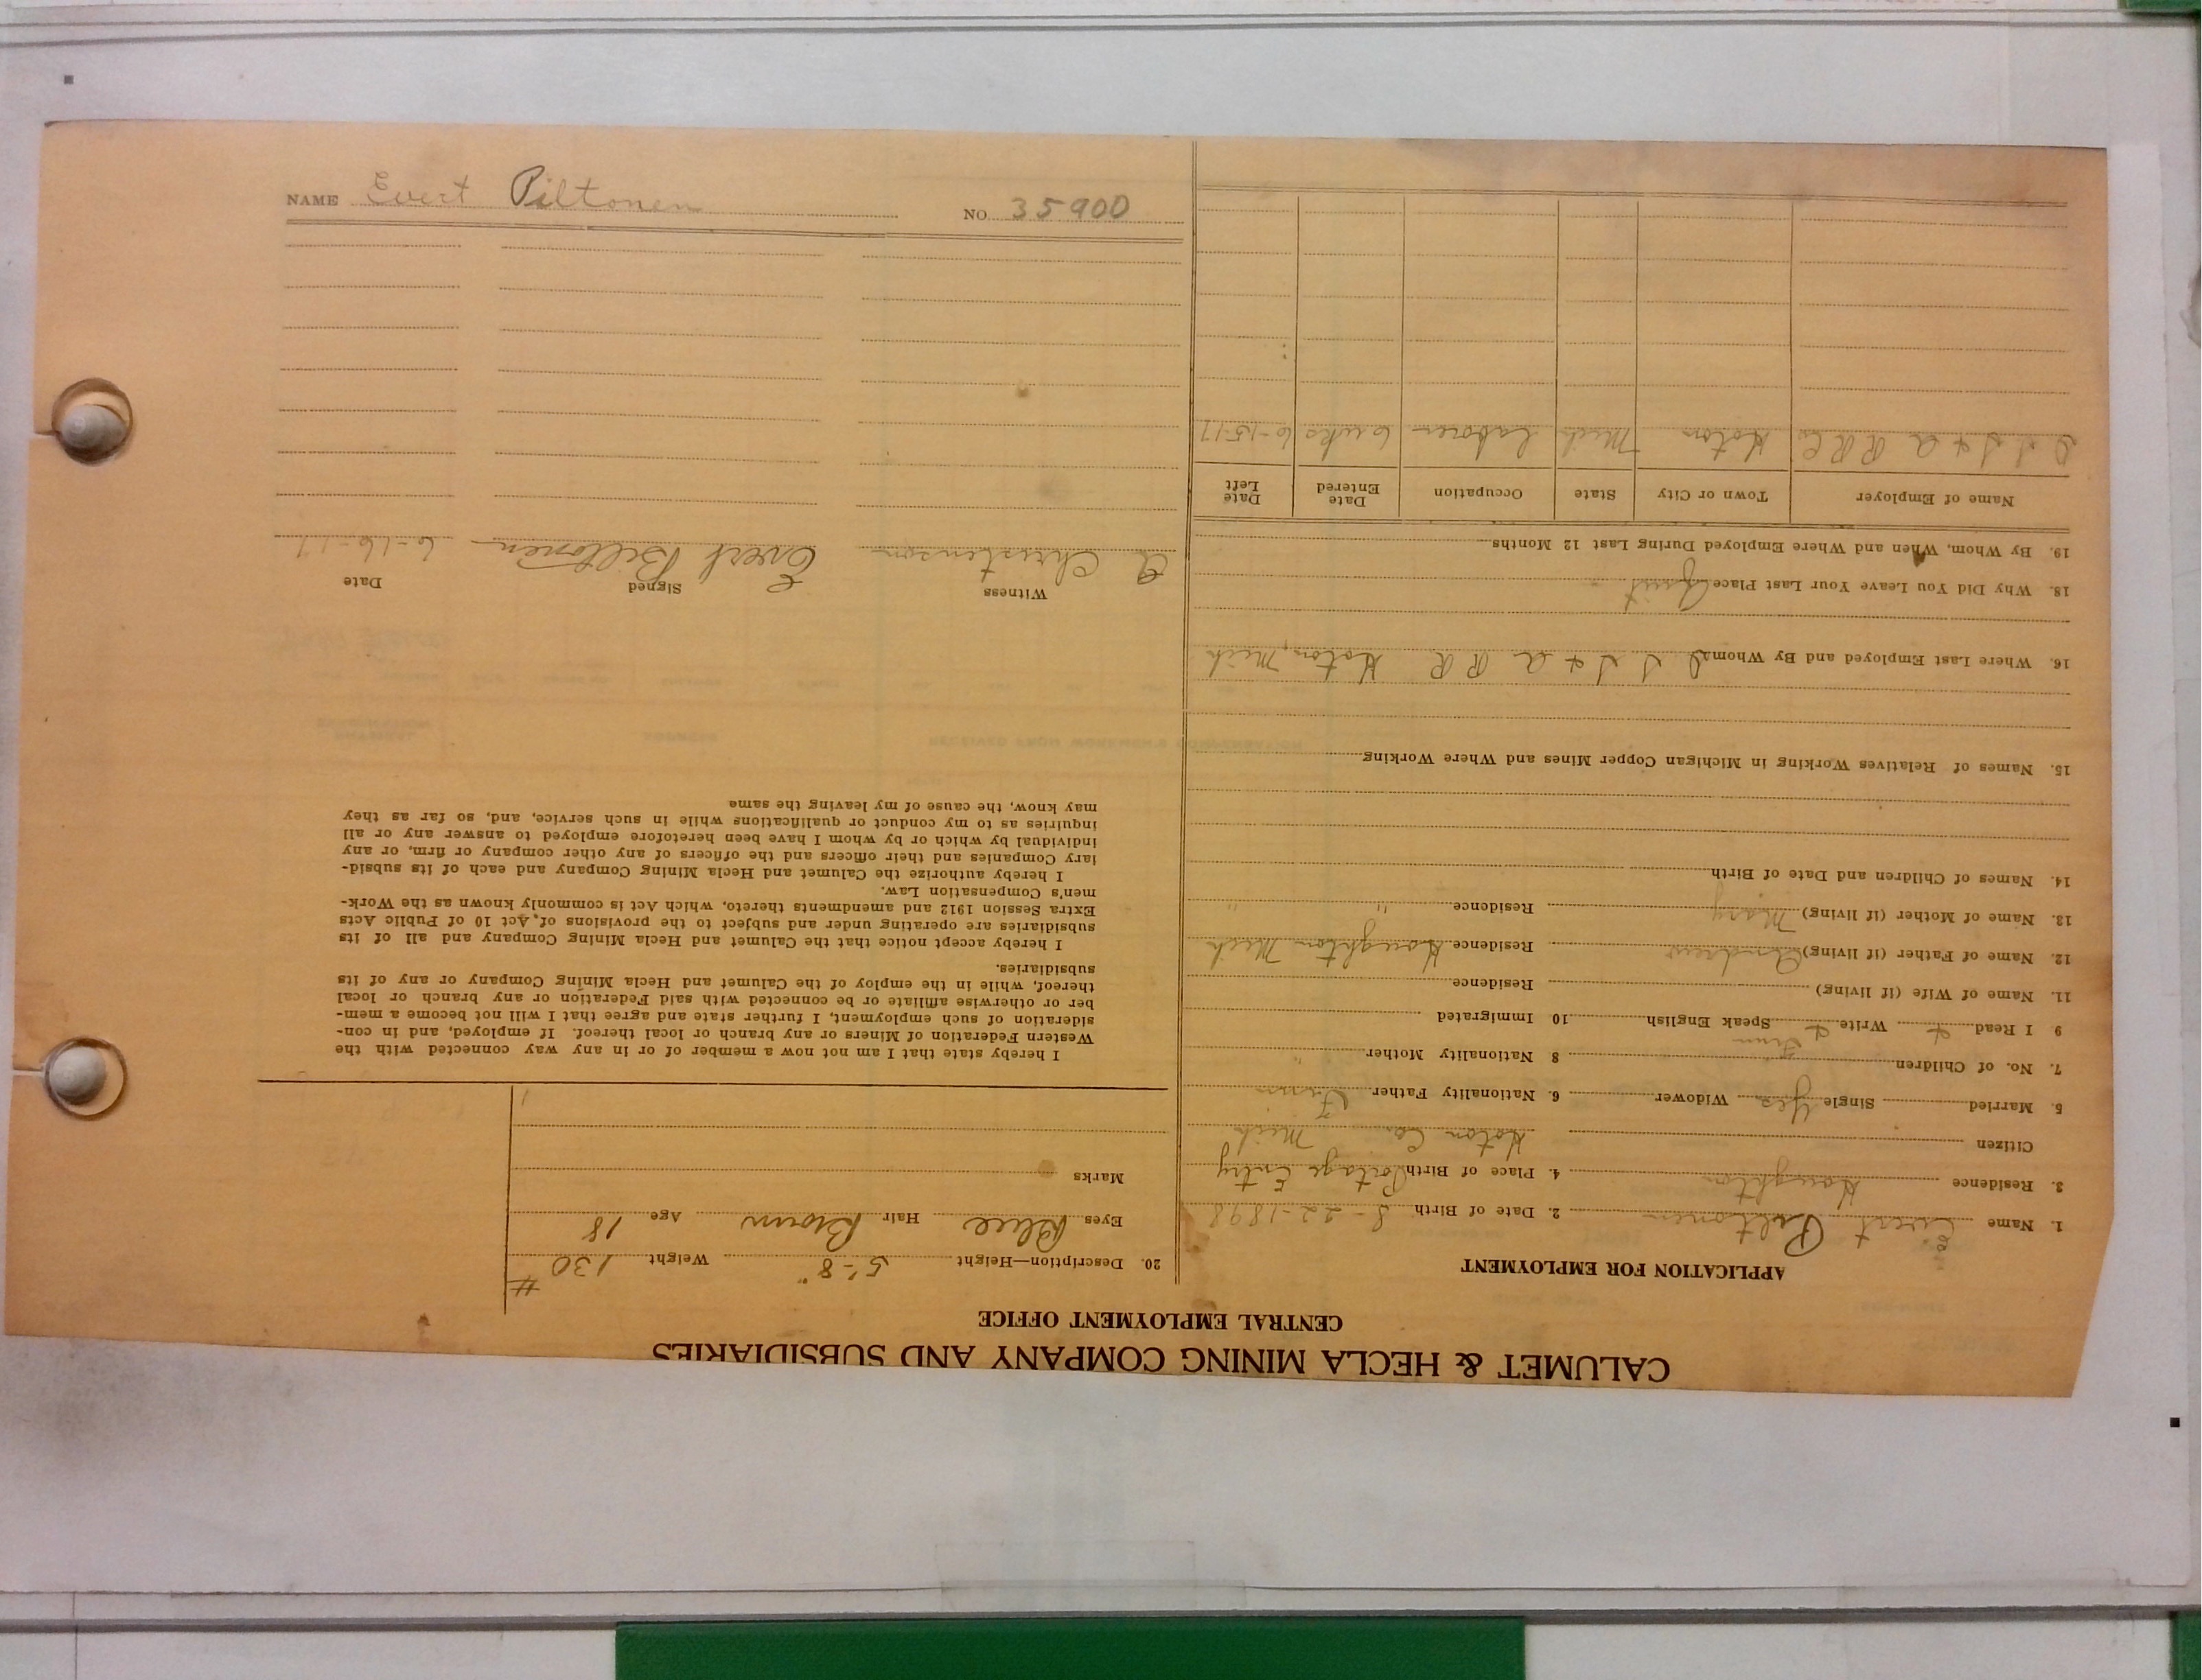 CALUMET & HECLA MINING COMPANY AND SUBSIDIARIES
CENTRAL EMPLOYMENT OFFICE
APPLICATION FOR EMPLOYMENT
1. Name Evert Piltonen 2. Date of Birth 8-22-1898
3. Residence Houghton 4. Place of Birth Portage Entry
Citizen Hoton Co. Mich
5. Married Single Yes Widower 6. Nationality Father Finn
7. No. of Children 8 Nationality Mother "
9 I Read Write Speak English 10 Immigrated
Finn
11. Name of Wife (if living) Residence
12. Name of Father (if living) Andrew Residence Houghton Mich
13. Name of Mother (if living) Mary Residence " "
14. Names of Children and Date of Birth
15. Names of Relatives Working in Michigan Copper Mines and Where Working
16. Where Last Employed and By Whom D S S & A R R Hoton, Mich
18. Why Did You Leave Your Last Place Quit
19. By Whom, When and Where Employed During Last 12 Months
Name of Employer Town or City State Occupation Date Entered Date Left
D S S & A R R Co. Hoton Mich laborer 6 wks 6-15-17
20. Description—Height 5'-8" Weight 130 #
Eyes Blue Hair Brown Age 18
Marks
I hereby state that I am not now a member of or in any way connected with the
Western Federation of Miners or any branch or local thereof. If employed, and in con-
sideration of such employment, I further state and agree that I will not become a mem-
ber or otherwise affiliate or be connected with said Federation or any branch or local
thereof, while in the employ of the Calumet and Hecla Mining Company or any of its
subsidiaries.
I hereby accept notice that the Calumet and Hecla Mining Company and all of its
subsidiaries are operating under and subject to the provisions of Act 10 of Public Acts
Extra Session 1912 and amendments thereto, which Act is commonly known as the Work-
men's Compensation Law.
I hereby authorize the Calumet and Hecla Mining Company and each of its subsid-
iary Companies and their officers and the officers of any other company or firm, or any
individual by which or by whom I have been heretofore employed to answer any or all
inquiries as to my conduct or qualifications while in such service, and, so far as they
may know, the cause of my leaving the same
Witness Signed Date
A Christenson Evert Biltonen 6-16-17
NAME Evert Piltonen NO. 35900